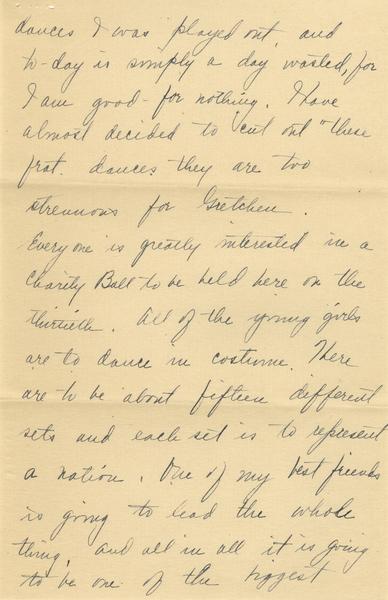 dances I was played out, and
to-day is simply a day wasted, for
I am good-for nothing. I have
almost decided to "cut out" these
frat. dances they are too
strennous for Gretchen.
Everyone is greatly interested in a
Charity Ball to be held here on the
thirtieth. All of the young girls
are to dance in costume. There
are to be about fifteen different
sets and each set is to represent
a nation. One of my best friends
is going to lead the whole
thing, and all in all it is going
to be one of the biggest